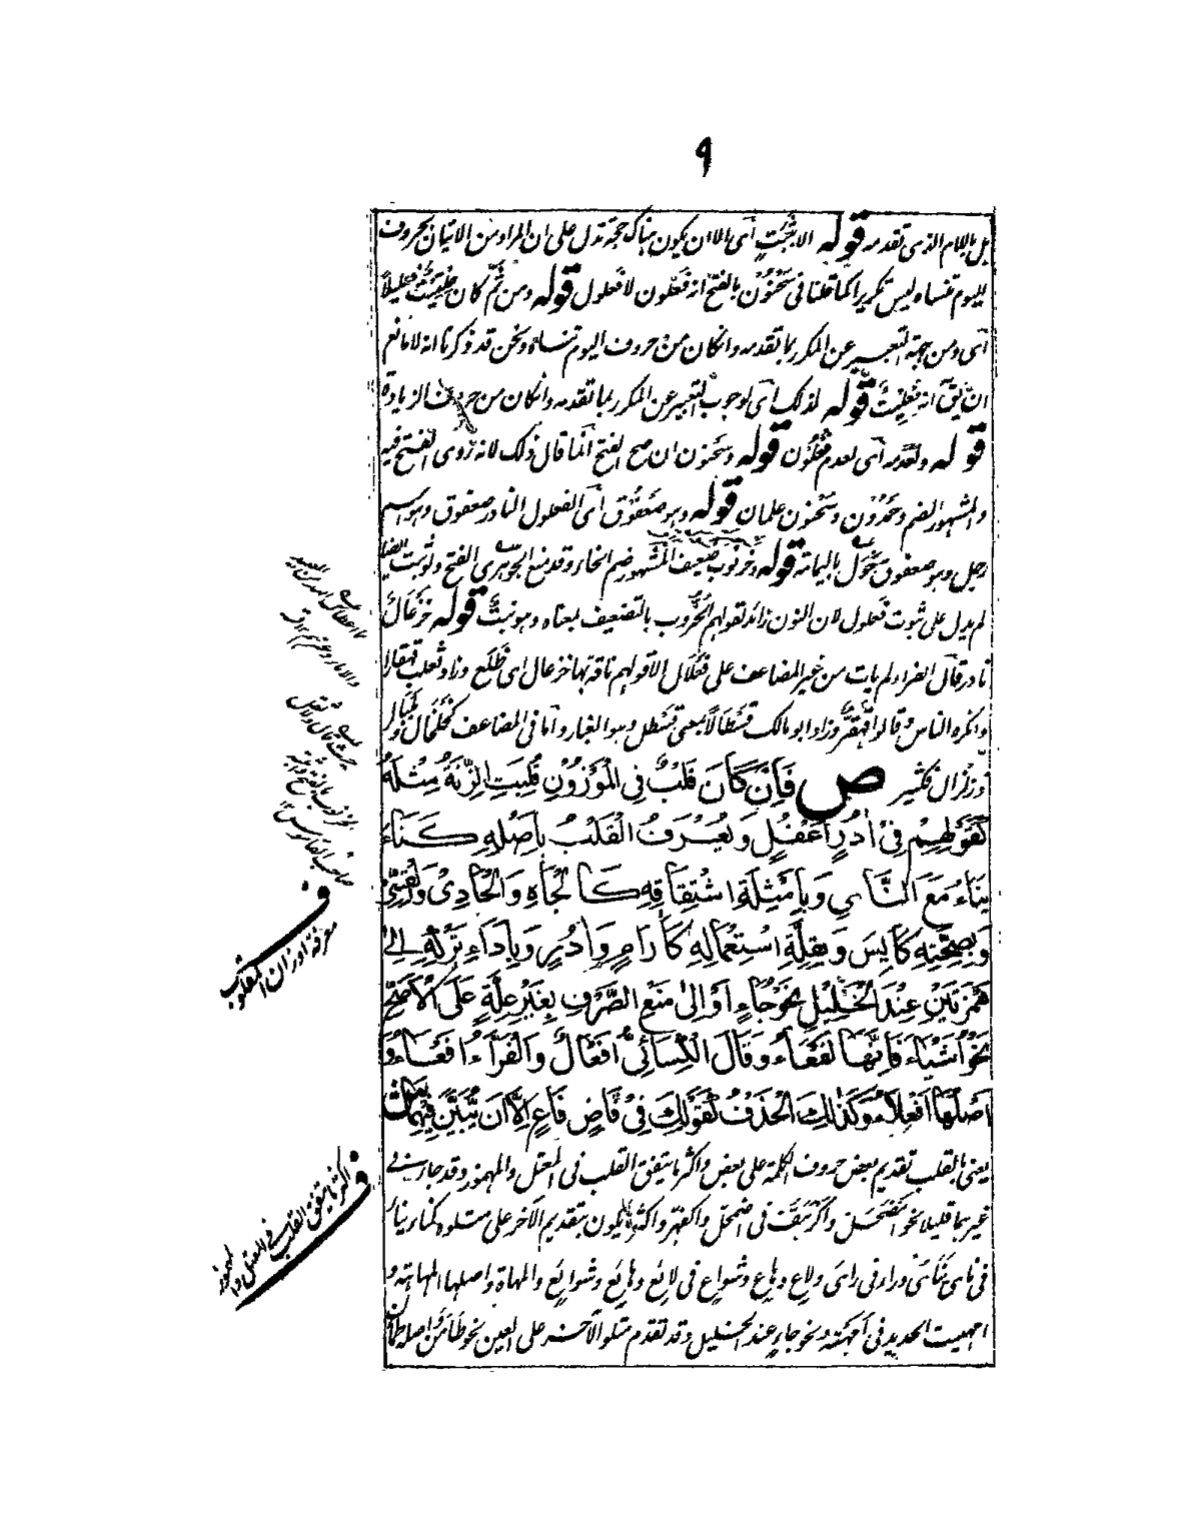 ٩
بل باللام الذى تقدمه قوله الا بثبت أى الا ان يكون هناك حجة تدل على ان المراد من الاتيان بحروف
اليوم تنساه ليس تكريرا كما قلنا فى سَحْنُوْن بالفتح انه فَعْلون لا فعلول قوله ومن ثم كان حِلْتِيْتٌ فعليلاً
أى ومن جهة التعبير عن المكرر بما تقدمه وانكان من حروف اليوم تنساه ونحن قد ذكرنا انه لا مانع
ان يقَ انه فِعْلِيْتٌ قوله لذلك أى لوجوب التعبير عن المكرر بما تقدمه وانكان من حروف الزيادة
قوله ولعدمه أى لعدم فُعْلُوْن قوله وسَحنون ان صح الفتح انما قال ذلك لانه رُوى الفتح فيه
والمشهور الضم وحَمْدُوْن وسَحْنون علمان قوله وهو صَعْفُوْق أى الفعلول النادر صعفوق وهو اسم
رجل وبنو صعفوق خَوَل باليمامة قوله وخرنوب ضعيف المشهور ضم الخاء وقد منع الجوهرى الفتح ولو ثبت ايضا
لم يدل على ثبوت فَعلول لان النون زائد لقولهم الخَرُّوب بالتضعيف بمعناه وهو نبتٌ قوله خَزْعَالٌ
نادر قال الفراء لم يات من غير المضاعف على فَعْلال الا قولهم ناقة بها خزعال أى ظَلْع وزاد ثعلب قهقارا
وانكره الناس وقالوا قَهْقَرٌّ وزاد ابو مالك قَسْطَالاً بمعنى قسطل وهو الغبار واما فى المضاعف كخلخال وبلبال
وزلزال فكثير ص فَاِنْ كَانَ قَلْبٌ فِى الْمَوْزُوْنِ قُلِبَتِ الزِّنَةُ مِثْلَهُ
كَقَوْلِهِمْ فِىْ اٰدُرٍ اَعْفُلٍ وَيُعْرَفُ الْقَلْبُ بِاَصْلِهٖ كَنَاءَ
يَنَاءُ مَعَ النَّاْىِ وَبِاَمْثِلَةِ اشْتِقَاقِهٖ كَالْجَاهِ وَالْحَادِىْ وَالْقِسِىِّ
وَبِصِحَّتِهٖ كَاَيِسَ وَبِقِلَّةِ اسْتِعْمَالِهٖ كَاٰرَامٍ وَاٰدُرٍ وَبِاَدَاءِ تَرْكِهٖ اِلٰى
هَمْزَتَيْنِ عِنْدَ الْخَلِيْلِ نَحْوُ جَاءٍ اَوْ اِلٰى مَنْعِ الصَّرْفِ بِغَيْرِ عِلَّةٍ عَلَى الْاَصَحِّ
نَحْوُ اَشْيَاءَ فَاِنَّهَا لَفْعَاءُ وَقَالَ الْكِسَائِىُّ اَفْعَالٌ وَالْفَرَّاءُ اَفْعَاءُ وَ
اَصْلُهَا اَفْعِلَاءُ وَكَذٰلِكَ الْحَذْفُ كَقَوْلِكَ فِىْ قَاضٍ فَاعٍ اِلَّا اَنْ يُّبَيَّنَ فِيْهِمَا
يعنى بالقلب تقديم بعض حروف الكلمة على بعض واكثر ما يتفق القلب فى المعتل والمهموز وقد جاء فى
غيرهما قليلا نحو امْضَحَلَّ واكْرَهَفَّ فى اضمحل واكفهر واكثر ما يكون بتقديم الآخر على متلوه كناء يناء
فى ناى يَنْاَى وراء فى راى ولاع وهاع وشواع فى لائع وهائع وشوائع والمهاة واصلها الماهة و
امهيت الحديد فى امهته ونحو جاءٍ عند الخليل وقد تقدم متلو الآخر على العين نحو طَاْمَنَ واصله طمأن
ف
معرفة اوزان المقلوب
ف
اكثر ما يتفق القلب فى المعتل والمهموز